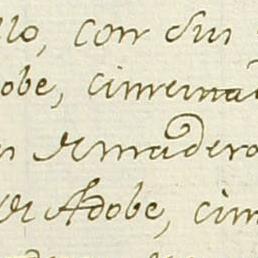 llo, con sus
obe, cinrema
n de madero
de Adobe, cim